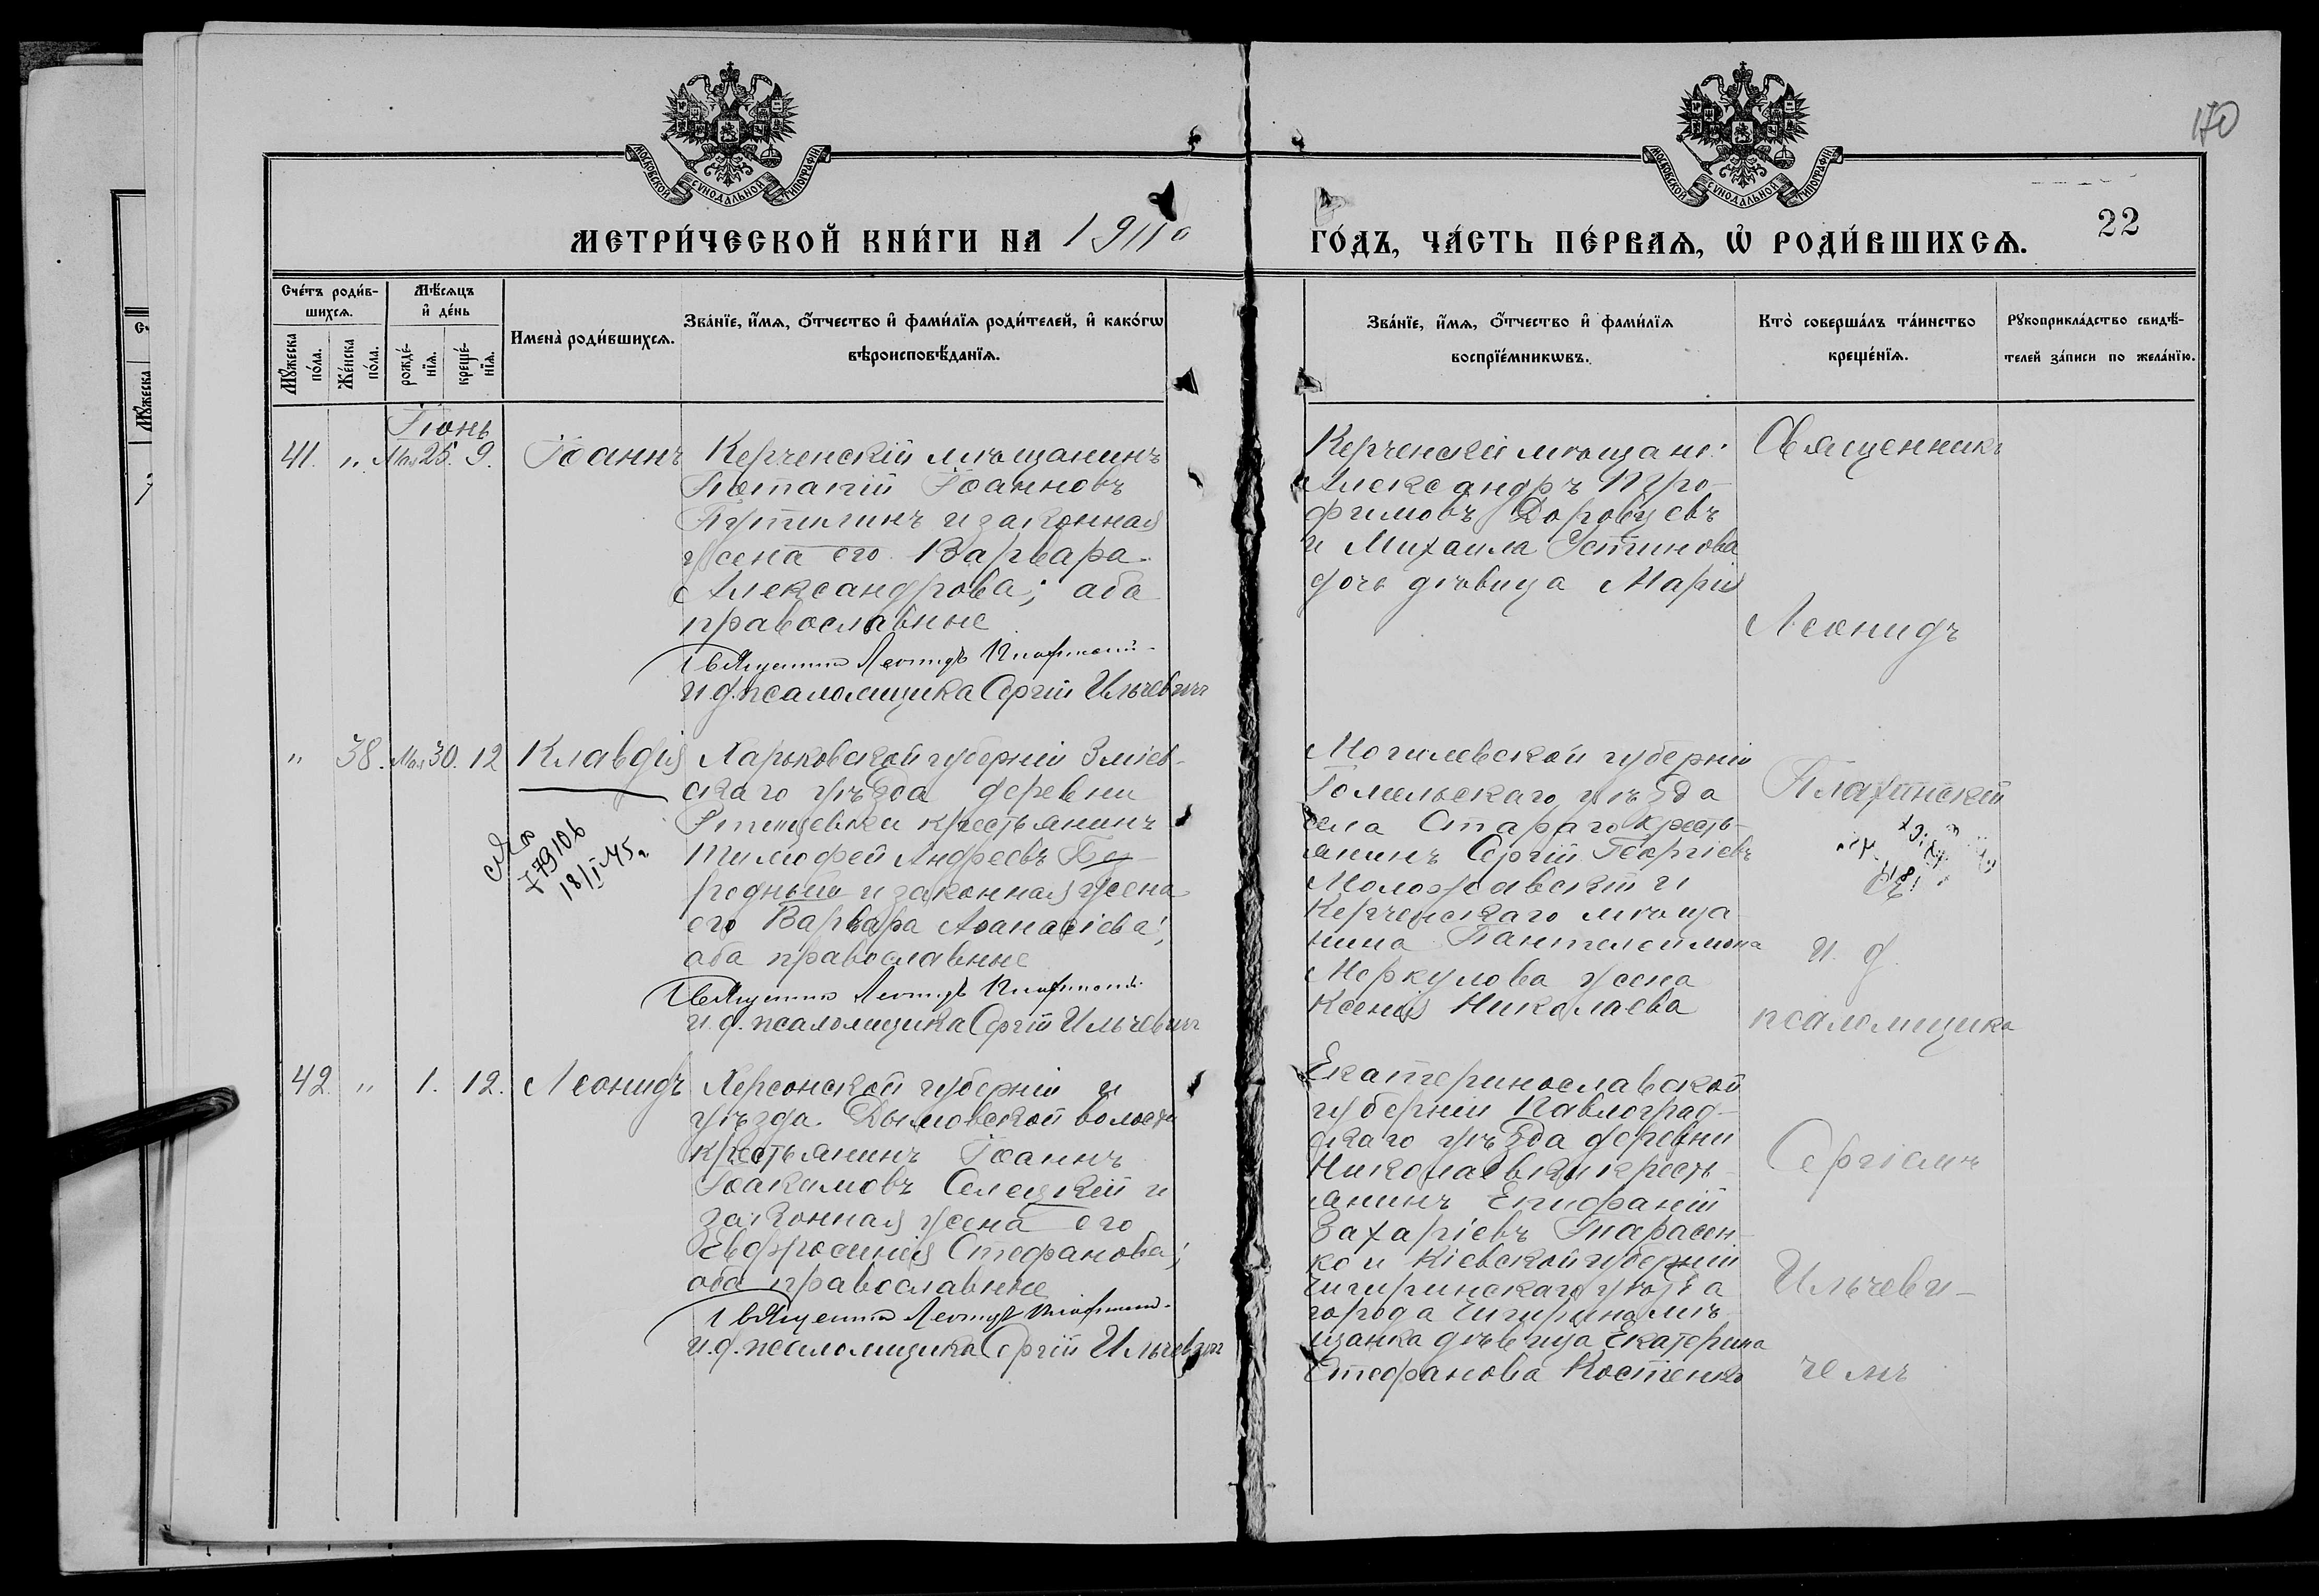 170
МОСКОВСКОЙ СУНОДАЛЬНОЙ ТИПОГРАФІИ
МОСКОВСКОЙ СУНОДАЛЬНОЙ ТИПОГРАФІИ
МЕТРИ́ЧЕСКОЙ КНИ́ГИ НА 1911
ГО́ДЪ, ЧА́СТЬ ПЕ́РВАѦ, Ѡ҆ РОДИ́ВШИХСѦ.
22
Сче́тъ роди́в-
шихсѧ.
Мꙋжеска по́ла.
Же́нска по́ла.
Мѣ́сѧцъ
и҆ де́нь
рожде́-
нїѧ.
креще́-
нїѧ.
Имена̀ роди́вшихсѧ.
Зва́нїе, и҆́мѧ, ѻ҆́тчество и҆ фами́лїѧ роди́телей, и҆ како́гѡ
вѣроисповѣ́данїѧ.
Зва́нїе, и҆́мѧ, ѻ҆́тчество и҆ фами́лїѧ
воспрїе́мникѡвъ.
Кто̀ соверша́лъ та́инство
креще́нїѧ.
Рꙋкоприкла́дство свидѣ́-
телей за́писи по жела́нїю.
Іюнь
41. " Мая 25. 9. Іоаннъ
Керченскій мѣщанинъ
Потапій Іоанновъ
Путилинъ и законная
жена его Варвара
Александрова; оба
православные
Священникъ Леонидъ
и.д. псаломщика Сергій Ильчевичъ
Керченскій мѣщане:
Александръ Тро-
фимовъ Доровцевъ
и Михаила Устинова
дочь дѣвица Марія
Священникъ
Леонидъ
" 38. Мая 30. 12 Клавдія
№
779106
18/I-45г
Харьковской губерніи Зміев-
скаго уѣзда деревни
крестьянинъ
Тимофей Андреевъ Без-
родный и законная жена
его Варвара Аѳанасіева;
оба православные
Священникъ Леонидъ
и.д. псаломщика Сергій Ильчевичъ
Могилевской губерніи
Гомельскаго уѣзда
села Стараго кресть-
янинъ Сергій Георгіевъ
и
Керченскаго мѣща-
нина Пантелеимона
Меркулова жена
Ксенія Николаева
и. д.
псаломщика
42. " 1. 12. Леонидъ
Херсонской губерніи и
уѣзда Дымовской волости
крестьянинъ Іоаннъ
Іоакимовъ Селецкій и
законная жена его
Евфросинія Стефанова;
оба православные
Священникъ Леонидъ
и.д. псаломщика Сергій Ильчевичъ
Екатеринославской
губерніи Павлоград-
скаго уѣзда деревни
Николаевки кресть-
янинъ Епифаній
Захаріевъ Тарасен-
ко и Кіевской губерніи
Чигиринскаго уѣзда
города Чигирина мѣ-
щанка дѣвица Екатерина
Стефанова Костенко
Сергіемъ
Ильчеви-
чемъ